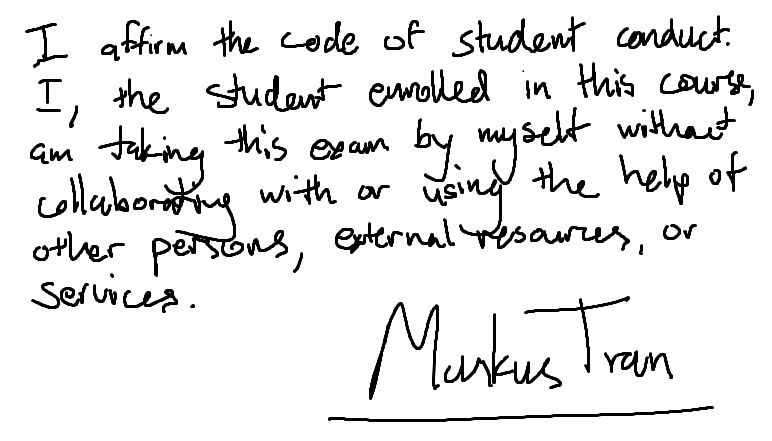 I affirm the code of student conduct.
I, the student enrolled in this course,
am taking this exam by myself without
collaborating with or using the help of
other persons, external resources, or
services.
Markus Tran